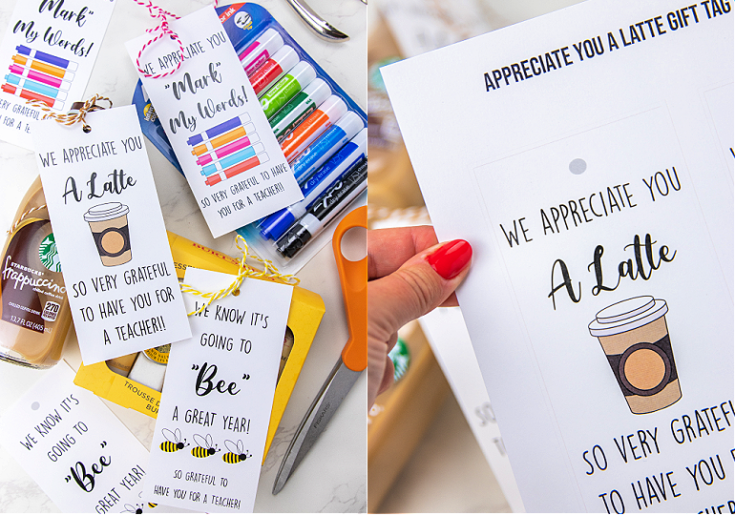 "Mark"
My Words!
VERY GRATEFUL
YOU FOR A TE
WE APPRECIATE YOU
"Mark"
My Words!
SO VERY GRATEFUL TO HAVE
YOU FOR A TEACHER!!
WE APPRECIATE YOU
A Latte
SO VERY GRATEFUL
TO HAVE YOU FOR
A TEACHER!!
STARBUCKS
frappuccino
WE KNOW IT'S
GOING TO
"Bee"
A GREAT YEAR!
SO GRATEFUL TO
HAVE YOU FOR A TEACHER!
TROUSSE D
BU
WE KNOW IT'S
GOING TO
"Bee"
A GREAT YEAR!
APPRECIATE YOU A LATTE GIFT TAG
WE APPRECIATE YOU
A Latte
SO VERY GRATEFU
TO HAVE YOU F
A TEACHER